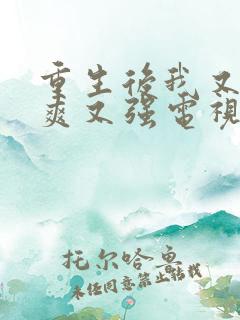 重生後我又
爽又强電視
托尔哈鲁
未经同意禁止转载